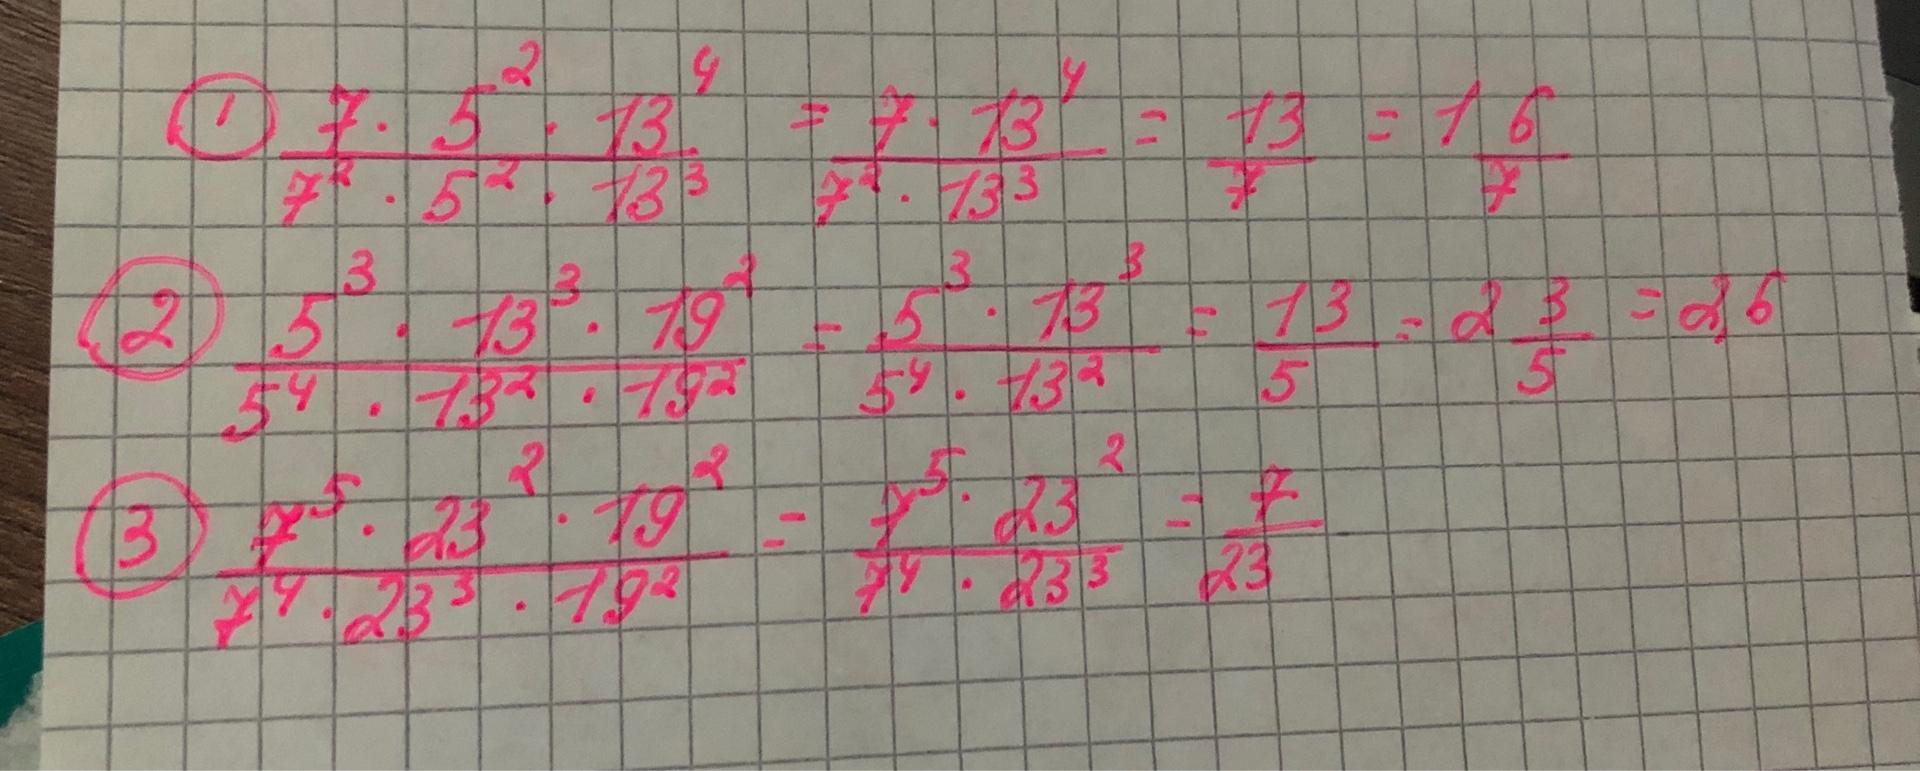 ① 7 · 5² · 13⁴ / 7² · 5² · 13³ = 7 · 13⁴ / 7² · 13³ = 13/7 = 1 6/7
② 5³ · 13³ · 19² / 5⁴ · 13² · 19² = 5³ · 13³ / 5⁴ · 13² = 13/5 = 2 3/5 = 2,6
③ 7⁵ · 23² · 19² / 7⁴ · 23³ · 19² = 7⁵ · 23² / 7⁴ · 23³ = 7/23